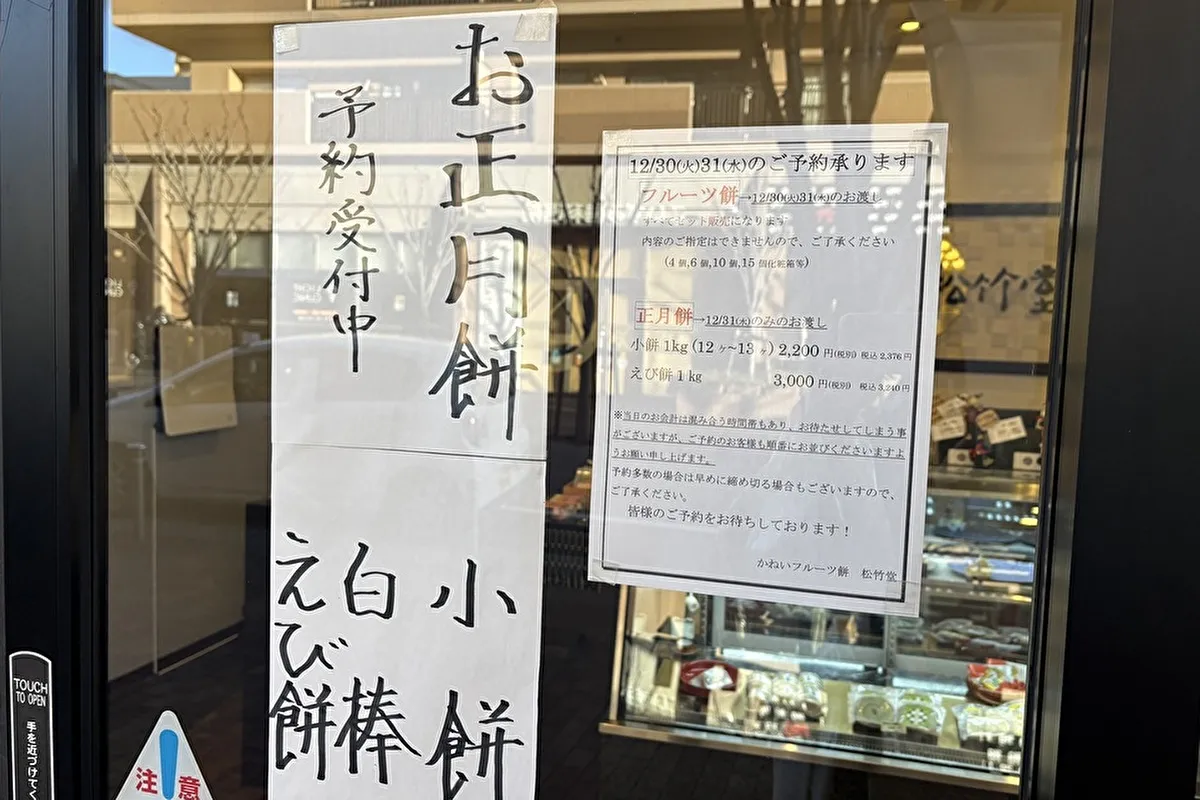 お正月餅
予約受付中
小餅
白棒
えび餅
12/30(火)31(水)のご予約承ります
フルーツ餅→12/30(火)31(水)のお渡し
すべてセット販売になります
内容のご指定はできませんので、ご了承ください
(4個,6個,10個,15個化粧箱等)
正月餅→12/31(水)のみのお渡し
小餅1kg(12ヶ~13ヶ)2,200円(税別) 税込2,376円
えび餅1kg 3,000円(税別) 税込3,240円
※当日のお会計は混み合う時間帯もあり、お待たせしてしまう事
がございますが、ご予約のお客様も順番にお並びくださいますよ
うお願い申し上げます。
予約多数の場合は早めに締め切る場合もございますので、
ご了承ください。
皆様のご予約をお待ちしております!
かねいフルーツ餅 松竹堂
松竹堂
TOUCH
TO OPEN
手を近づけてく
注意